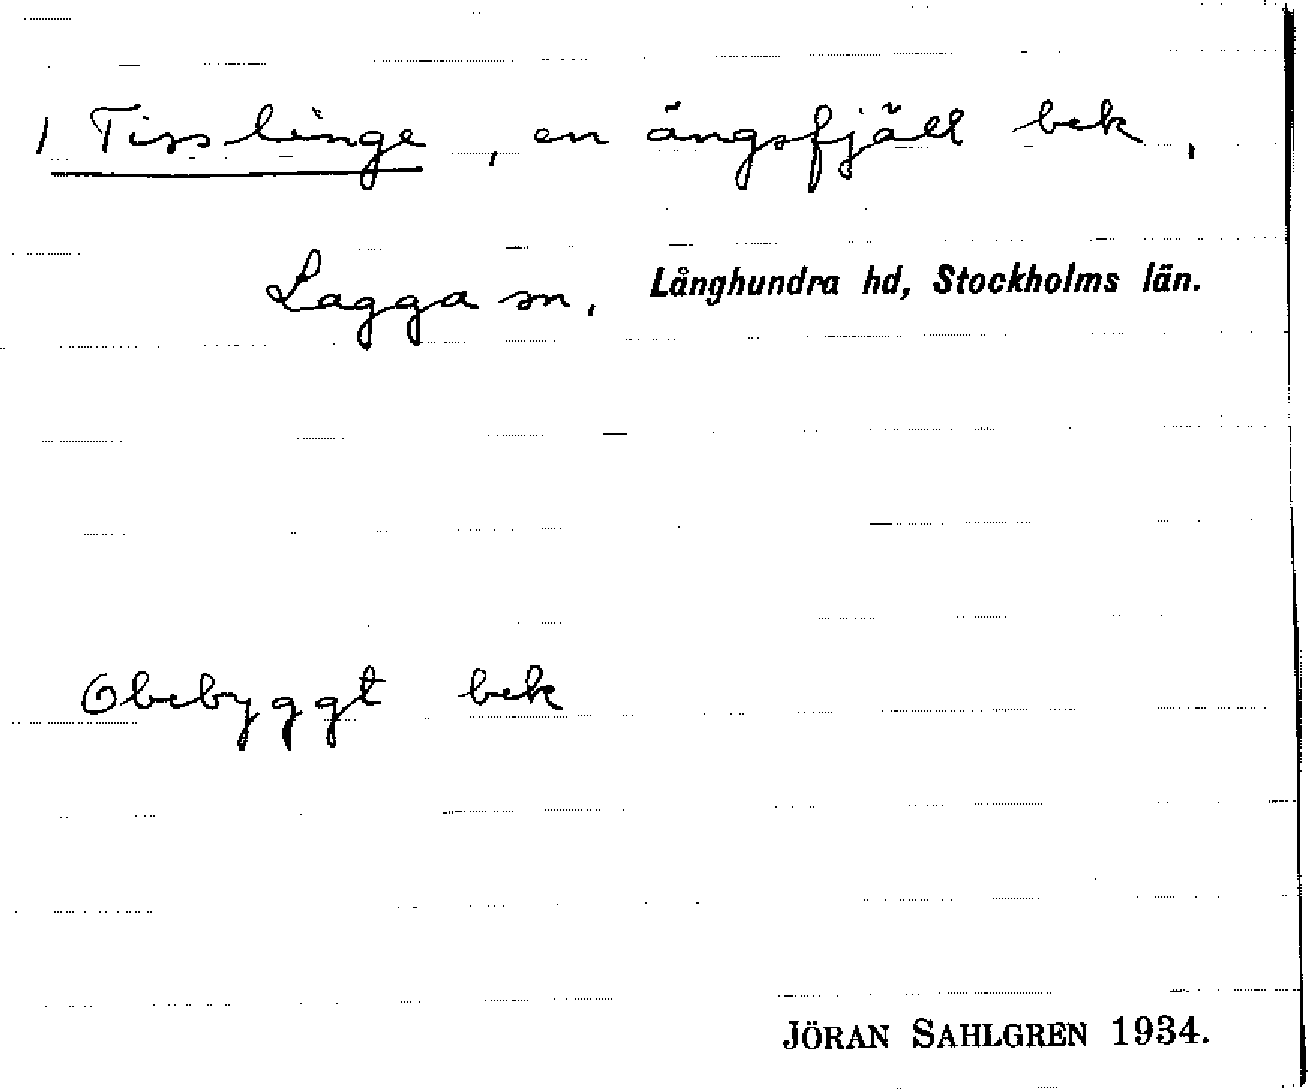 1 Tisslinge, en ängsfjäll bek,
Lagga sn, Långhundra hd, Stockholms län.
Obebyggt bek
JÖRAN SAHLGREN 1934.